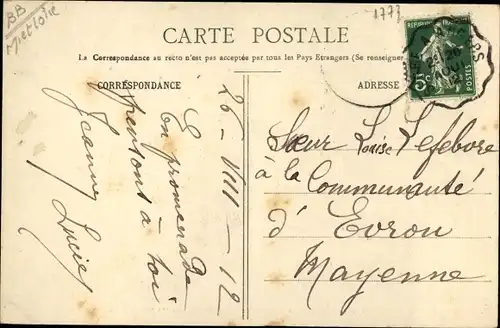 BB
1773
CARTE POSTALE
La Correspondance au recto n'est pas acceptée par tous les Pays Etrangers (Se renseigner
CORRESPONDANCE
ADRESSE
26 - VIII - 12
En promenade
pensons à toi
Jeanne
Lucie
5c
Sœur Louise Lefebvre
à la Communauté
d'Evron
Mayenne